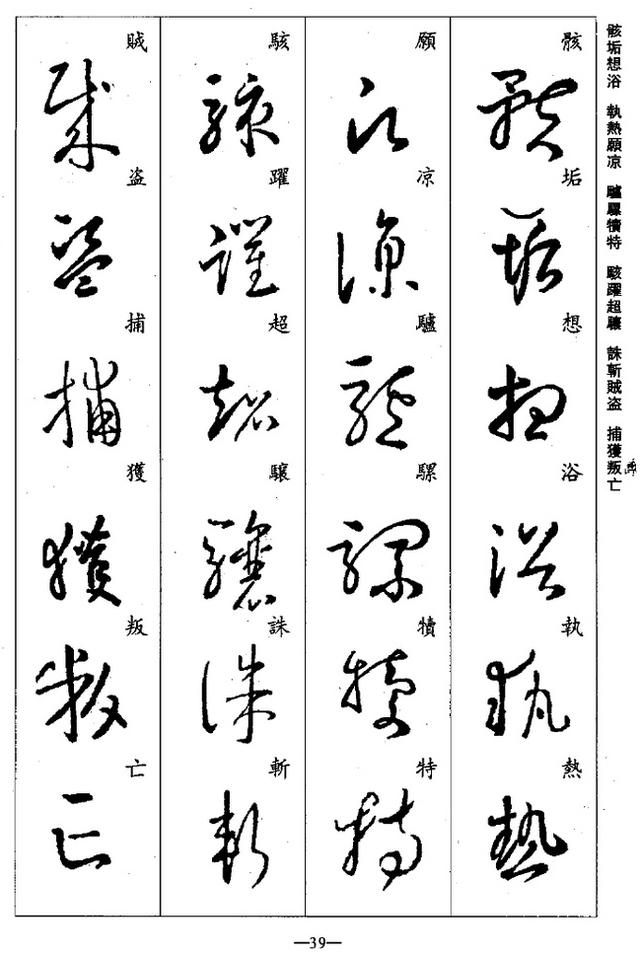 骸垢想浴　執熱願凉　驢騾犢特　駭躍超驤　誅斬賊盗　捕獲叛亡
骸
垢
想
浴
執
熱
願
凉
驢
騾
犢
特
駭
躍
超
驤
誅
斬
賊
盗
捕
獲
叛
亡
—39—